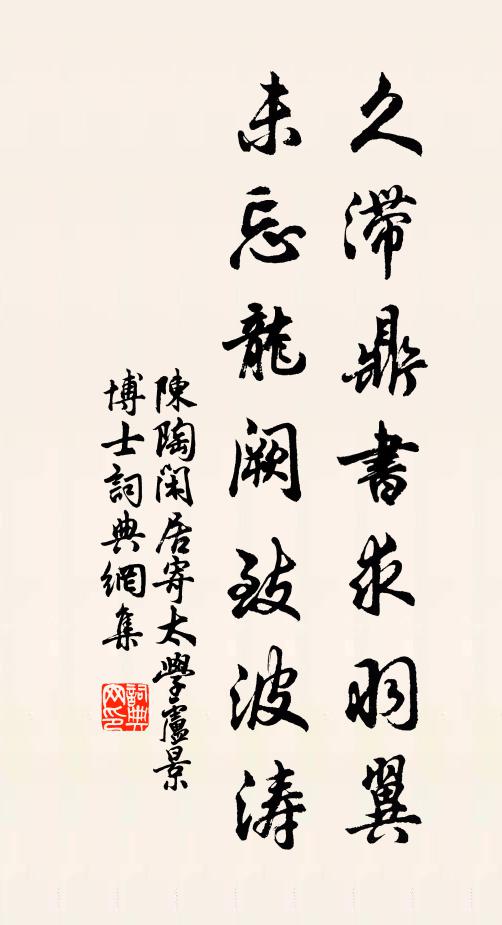 久滯鼎書求羽翼
未忘龍闕致波濤
陳陶閑居寄太學盧景
博士詞典網集
詞典网印